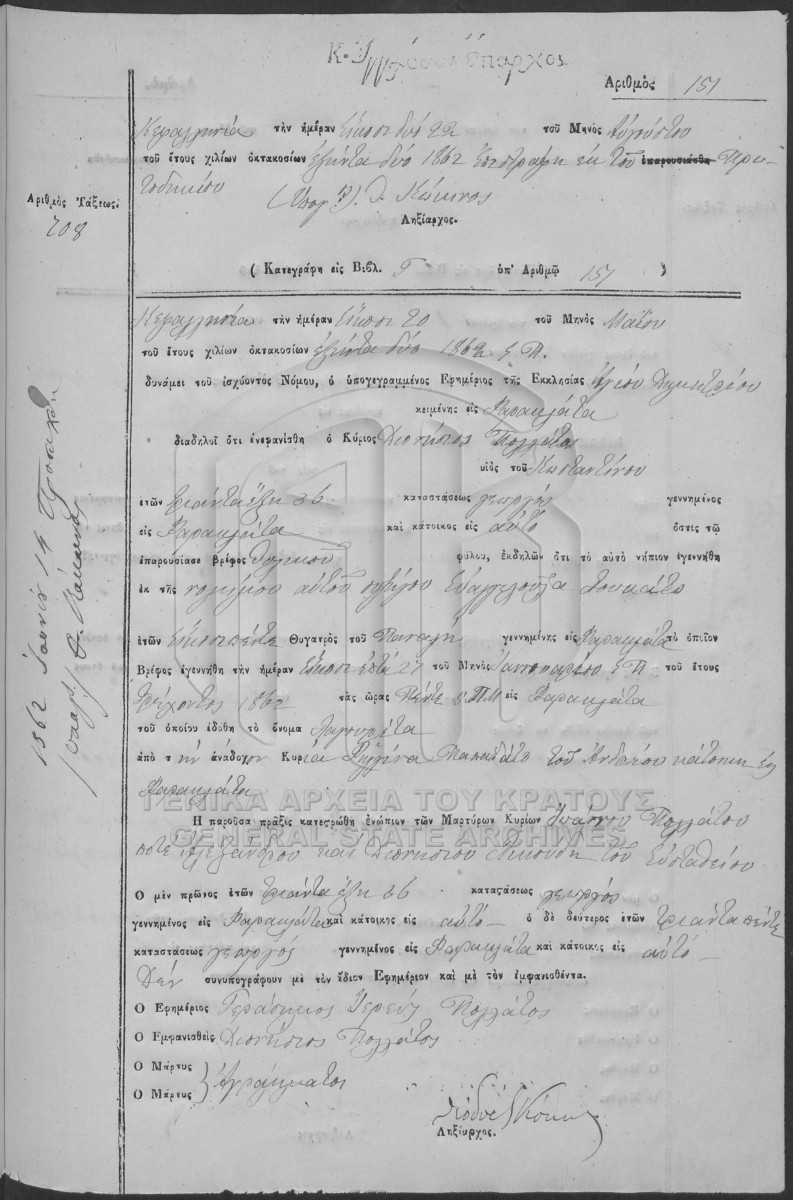 Κ. Έπαρχος
Αριθμὸς 151
Κεφαλληνία τὴν ἡμέραν Εἴκοσι δύο 22 τοῦ Μηνὸς Αὐγούστου
τοῦ ἔτους χιλίων ὀκτακοσίων ἑξῆντα δύο 1862 Ἐπεστράφη ἐκ τοῦ ἐπαρουσιάσθη Πρω-
τοδικείου
Ληξίαρχος.
Ἀριθμὸς Τάξεως.
208
( Κατεγράφη εἰς Βιβλ. Γ ὑπ' Ἀριθμῷ 151 )
Κεφαλληνία τὴν ἡμέραν Εἴκοσι 20 τοῦ Μηνὸς Μαΐου
τοῦ ἔτους χιλίων ὀκτακοσίων ἑξῆντα δύο 1862 ἔ. Π.
δυνάμει τοῦ ἰσχύοντος Νόμου, ὁ ὑπογεγραμμένος Ἐφημέριος τῆς Ἐκκλησίας Ἁγίου Δημητρίου
κειμένης εἰς Φαρακλάτα
διαδηλοῖ ὅτι ἐνεφανίσθη ὁ Κύριος Διονήσιος Πολλάτος
υἱὸς τοῦ Κωσταντίνου
ἐτῶν τριάντα ἕξη 36 καταστάσεως γεωργὸς γεννημένος
εἰς Φαρακλάτα καὶ κάτοικος εἰς αὐτὸ ὅστις τῷ
ἐπαρουσίασε βρέφος θηλυκοῦ φύλου, ἐκδηλῶν ὅτι τὸ αὐτὸ νήπιον ἐγεννήθη
ἐκ τῆς νομίμου αὐτοῦ συζύγου Εὐαγγελούλα
ἐτῶν Εἴκοσι πέντε Θυγατρὸς τοῦ Παναγῆ γεννημένης εἰς Φαρακλάτα τὸ ὁποῖον
Βρέφος ἐγεννήθη τὴν ἡμέραν Εἴκοσι ἑπτὰ 27 τοῦ Μηνὸς Ἰαννουαρίου ἔ Π τοῦ ἔτους
τρέχοντος 1862 τὰς ὥρας Πέντε 5 Π.Μ εἰς Φαρακλάτα
τοῦ ὁποίου ἐδόθη τὸ ὄνομα
ἀπὸ τὴν ἀνάδοχον Κυρία Παπαδάτο τοῦ Ἀνδρέου κάτοικη εἰς
Φαρακλάτα
Ἡ παροῦσα πρᾶξις κατεστρώθη ἐνώπιον τῶν Μαρτύρων Κυρίων Ἰωάννου Πολλάτου
ποτὲ Ἀλεξάνδρου καὶ Διονησίου τοῦ Εὐσταθείου
Ὁ μὲν πρῶτος ἐτῶν τριάντα ἕξη 36 καταστάσεως γεωργὸς
γεννημένος εἰς Φαρακλάτα καὶ κάτοικος εἰς αὐτὸ ὁ δὲ δεύτερος ἐτῶν τριάντα πέντε
καταστάσεως γεωργὸς γεννημένος εἰς Φαρακλάτα καὶ κάτοικος εἰς αὐτὸ
Δὲν συνυπογράφουν μὲ τὸν ἴδιον Ἐφημέριον καὶ μὲ τὸν ἐμφανισθέντα.
Ὁ Ἐφημέριος Γεράσιμος Ἱερεὺς Πολλάτος
Ὁ Ἐμφανισθεὶς Διονήσιος Πολλάτος
Ὁ Μάρτυς
Ὁ Μάρτυς } Ἀγράμματοι
Ληξίαρχος.
1862 Ἰουνίου 14
ΓΕΝΙΚΑ ΑΡΧΕΙΑ ΤΟΥ ΚΡΑΤΟΥΣ
GENERAL STATE ARCHIVES